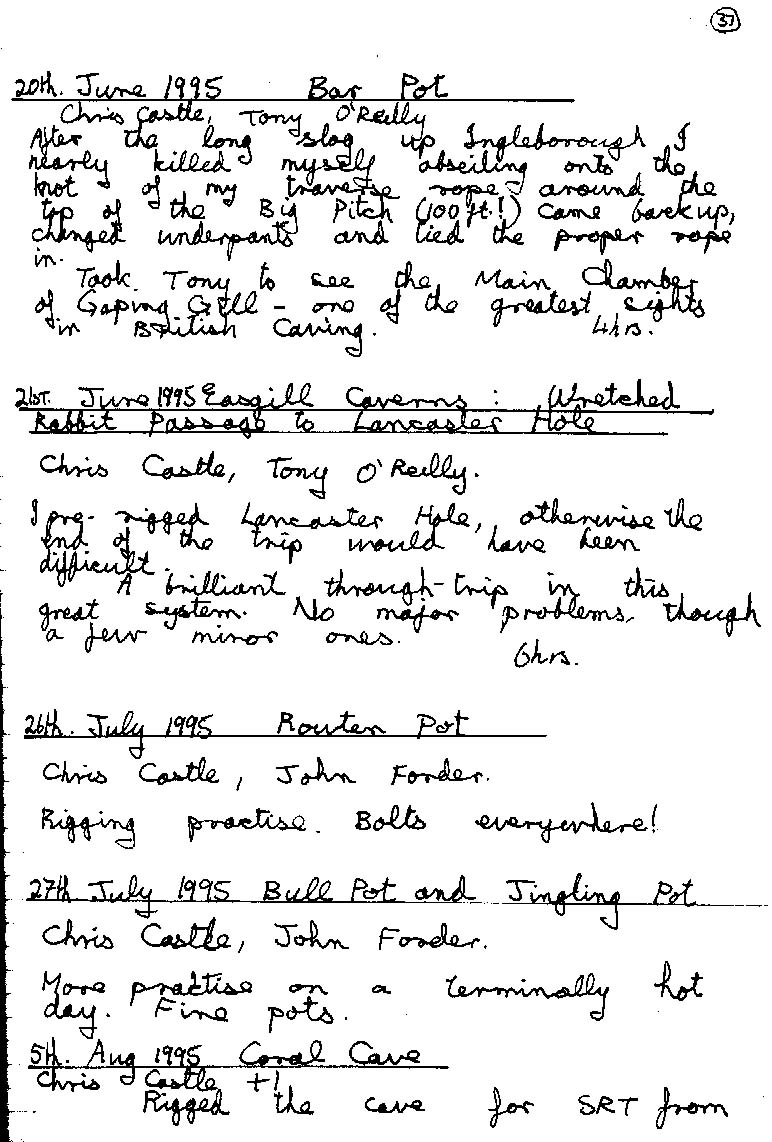 37
20th. June 1995 Bar Pot
Chris Castle, Tony O'Reilly
After the long slog up Ingleborough I
nearly killed myself abseiling onto the
knot of my traverse rope around the
top of the Big Pitch (100ft.!) Came back up,
changed underpants and tied the proper rope
in.
Took Tony to see the Main Chamber
of Gaping Gill - one of the greatest sights
in British Caving. 4hrs.
21st. June 1995 Easgill Caverns: Wretched
Rabbit Passage to Lancaster Hole
Chris Castle, Tony O'Reilly.
I pre-rigged Lancaster Hole, otherwise the
end of the trip would have been
difficult.
A brilliant through-trip in this
great system. No major problems, though
a few minor ones.
6hrs.
26th. July 1995 Routen Pot
Chris Castle, John Forder.
Rigging practise. Bolts everywhere!
27th July 1995 Bull Pot and Jingling Pot
Chris Castle, John Forder.
More practise on a terminally hot
day. Fine pots.
5th. Aug 1995 Coral Cave
Chris Castle +1
Rigged the cave for SRT from